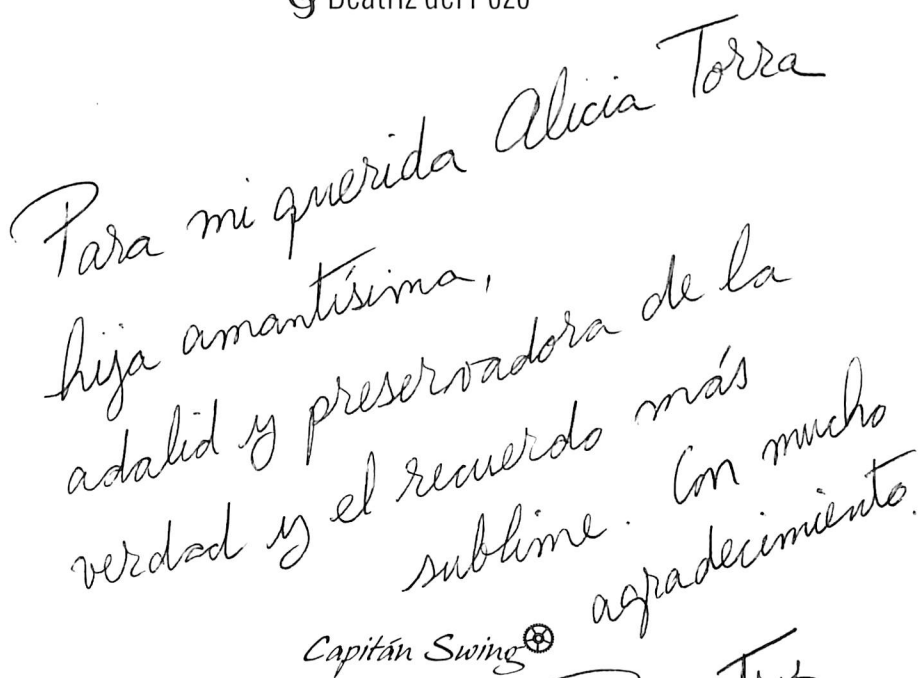 Beatriz del Pozo
Para mi querida Alicia Torra
hija amantísima,
adalid y preservadora de la
verdad y el recuerdo más
sublime. Con mucho
agradecimiento.
Capitán Swing